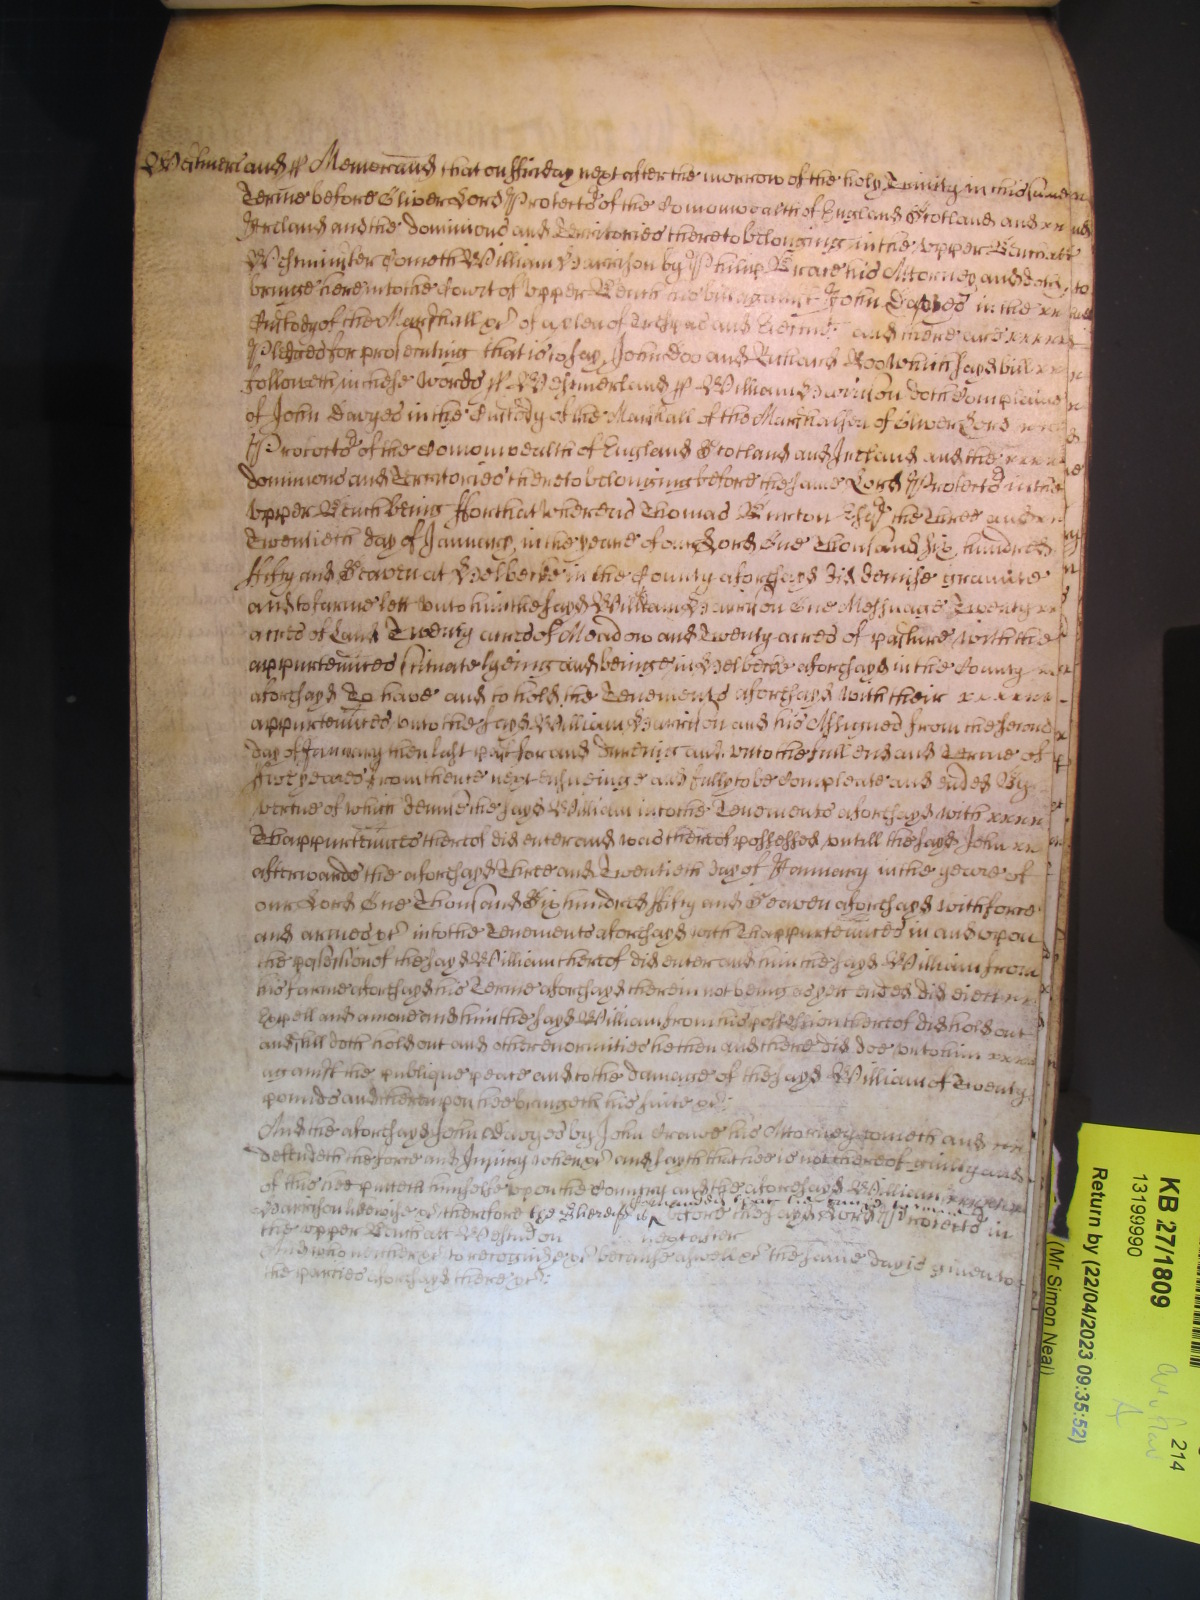 Westmerland ss Memorand that on ffriday next after the morrow of the holy Trinity in this same
Terme before Oliver Lord Protector of the Comonwealth of England Scotland and xx
Ireland and the dominions and Territories thereto belonging in the upper Bench att
Westminster Cometh William Harrison by Philip his Attorney and doth
bringe here into the Court of upper Bench his bill against John Davyes in the xx
Custody of the Marshall &c of a plea of Trespas and Eiectmt and there are xxxxx
Pledges for prosecuting that is to say John Doo and Richard Roo Which sayd bill xx
followeth in these words ss Westmerland ss William Harrison doth Complaine
of John Davyes in the Custody of the Marshall of the Marshalsea of Oliver Lord
Protector of the Comonwealth of England Scotland and Ireland and the xxxx
dominions and Territories thereto belonging before the same Lord Protector in the
upper Bench being ffor that Whereas Thomas Burton the Three and xx
Twentieth day of January in the yeare of our Lord One Thousand Six hundred
ffifty and Seaven at Helbecke in the County aforesayd did demise graunte
and to farme lett unto him the sayd William Harrison One Messuage Twenty xx
acres of Land Twenty acres of Meadow and Twenty acres of pasture with the
appurtennces scituate lyeing and beinge in Helbecke aforesayd in the County
aforesayd To have and to hold the Tenements aforesayd with their xxxxxx
appurtennces unto the sayd William Harrison and his Assignes from the second
day of January then last past for and dureing and unto the full end and Terme of
five yeares from thence next ensueinge and fully to be Compleate and ended By
vertue of which demise the sayd William into the Tenements aforesayd with xxxx
Thappurtennces thereof did enter and was thereof possessed untill the sayd John xx
afterwards the aforesayd Three and Twentieth day of January in the yeare of
our Lord One Thousand Six hundred ffifty and Seaven aforesayd with force
and armes &c into the Tenements aforesayd with Thappurtennces in and upon
the possession of the sayd William thereof did enter and him the sayd William from
his farme aforesayd his Terme aforesayd therein not being as yett ended did eiect
Expell and amove and him the sayd William from his possession thereof did hold out
and still doth hold out and other enormities hee then and there did doe unto him xxxx
against the publique peace and to the damage of the sayd William of Twenty
pounds and thereupon hee bringeth his suite &c:
And the aforesayd John Davyes by John Crawe his Attorney Cometh and
defendeth the force and Iniury when &c and sayth that hee is not thereof guilty and
of this hee putteth himselfe upon the Country and the aforesayd William
Harrison likewise &c therefore the Sheriffe is before the sayd Lord Protector in
the upper Bench att Westm on next after
And who neither &c to recognize &c because aswell &c the same day is given to
the parties aforesayd there &c:
KB 27/1809
13199990
Return by (22/04/2023 09:35:52)
(Mr Simon Neal)
214